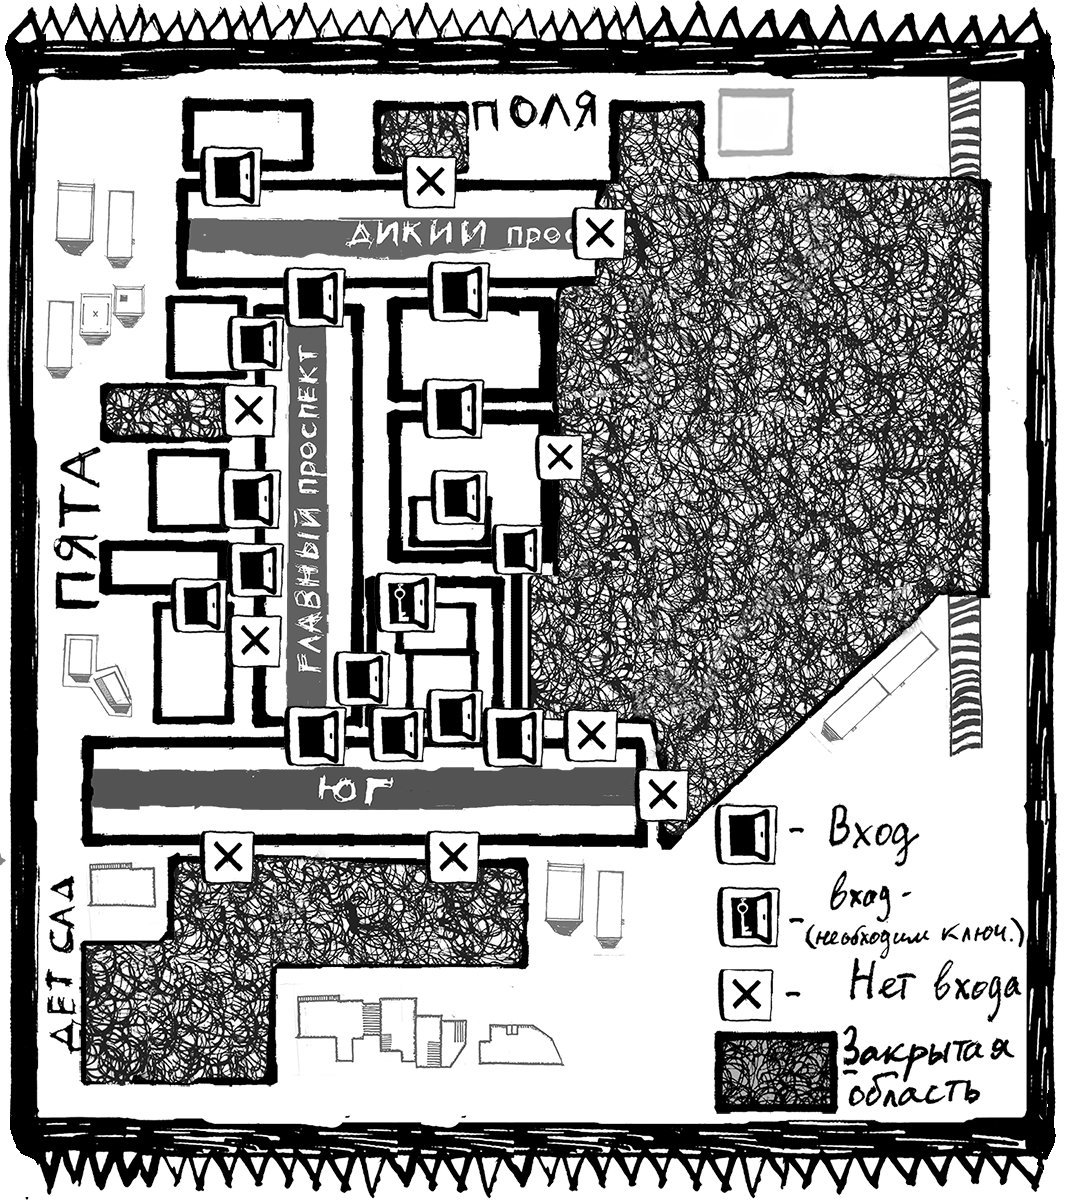 ПОЛЯ
ДИКИЙ прос
ГЛАВНЫЙ ПРОСПЕКТ
ПЯТА
ЮГ
ДЕТ САД
- Вход
- вход -
(необходим ключ.)
- Нет входа
Закрытая
область